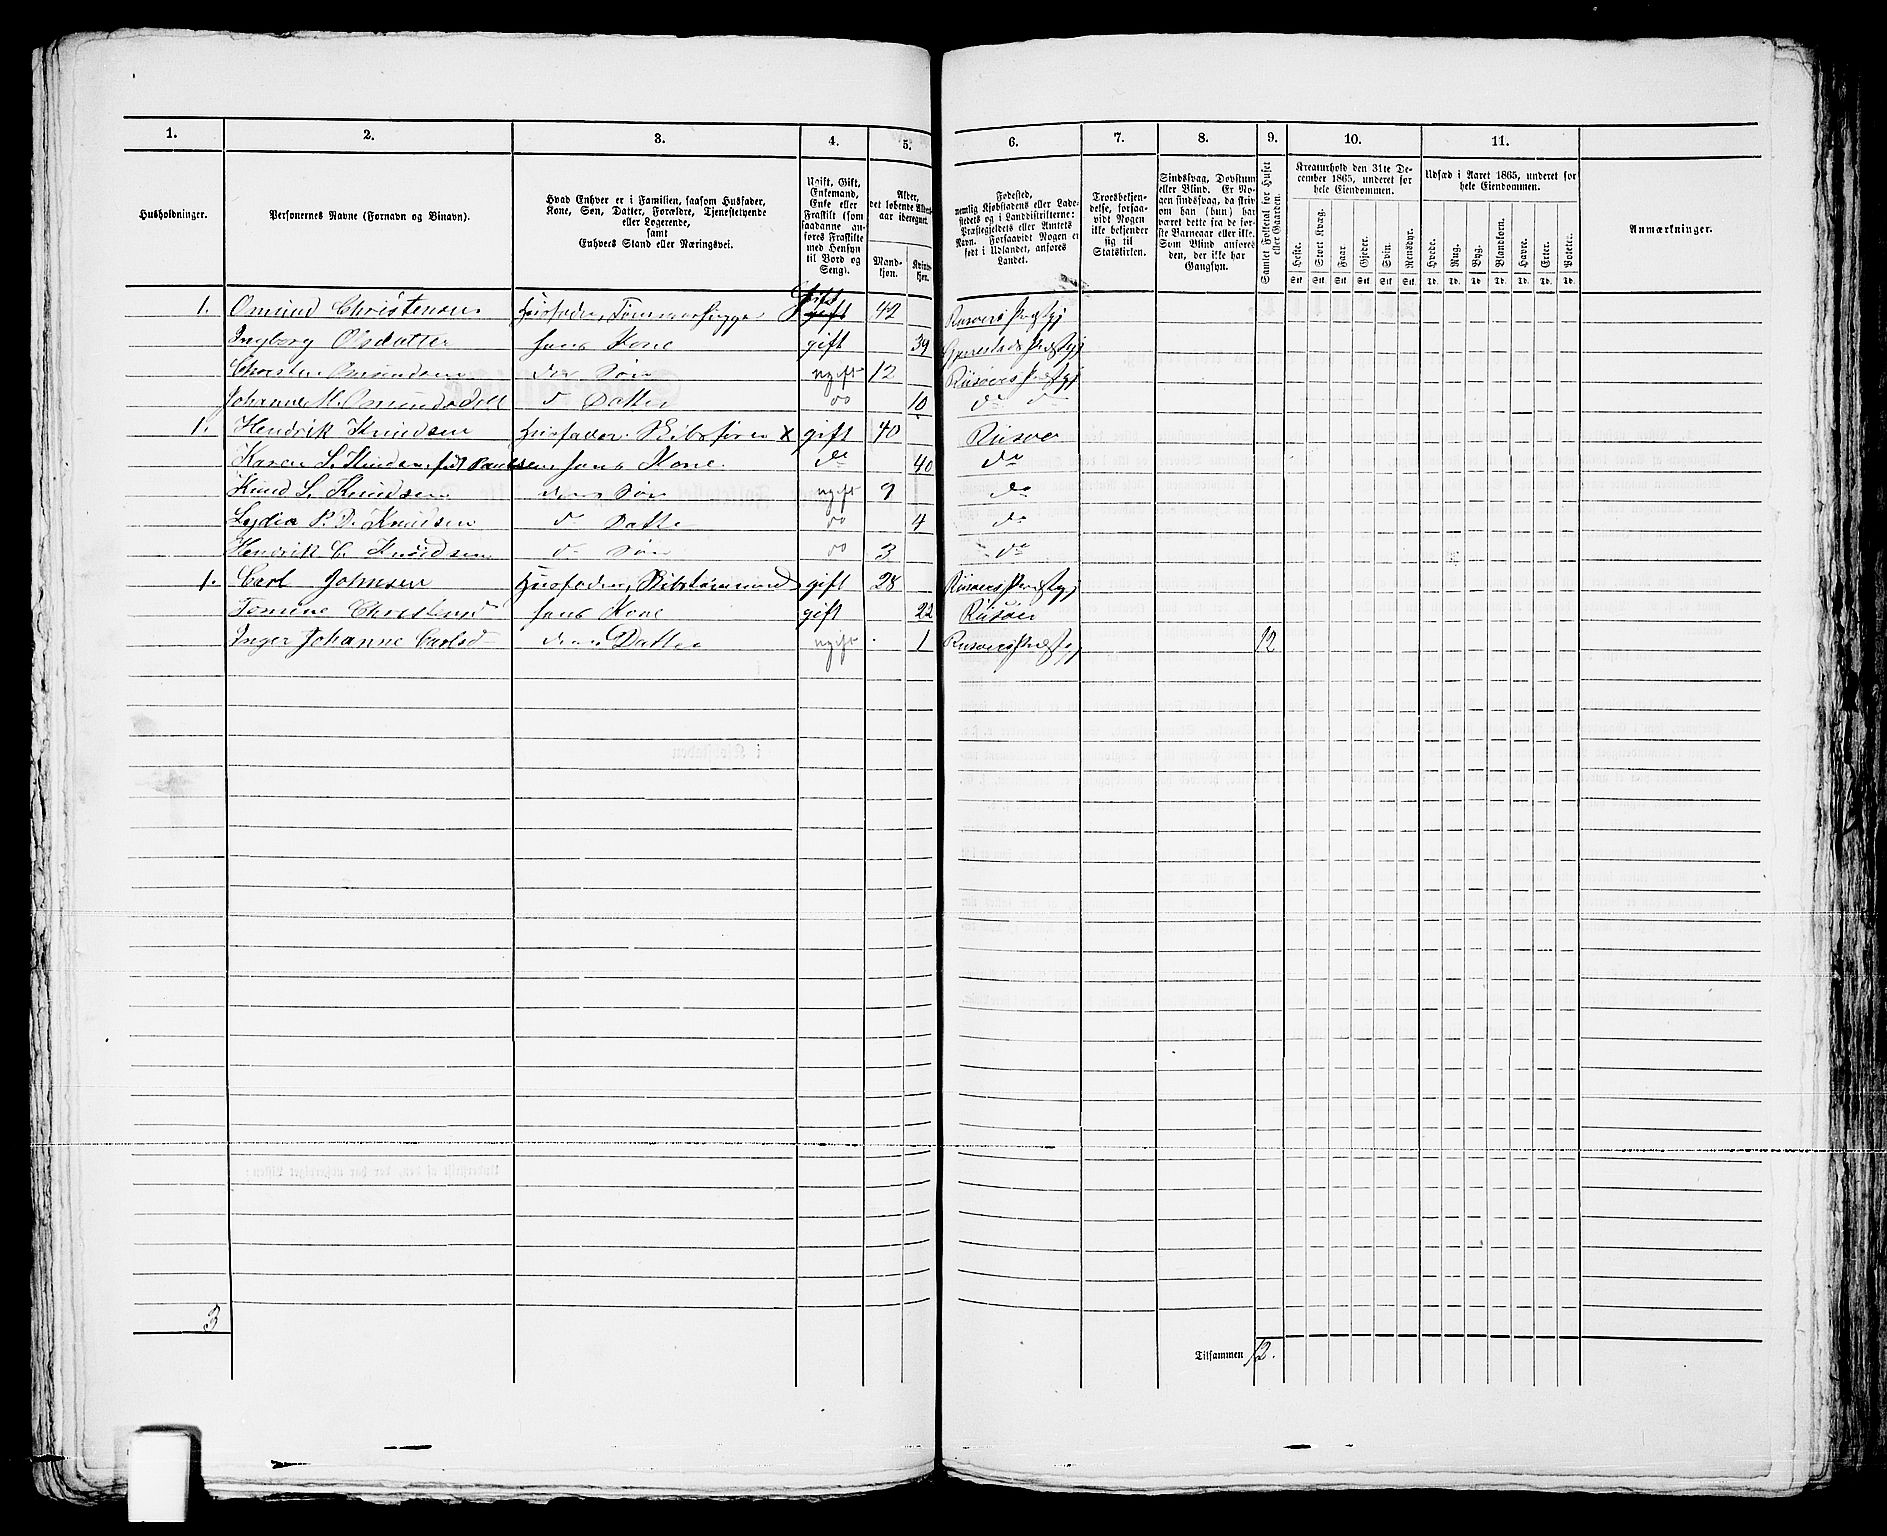 1. 2. 3. 4. 5. 6. 7. 8. 9. 10. 11.
Husholdninger.
Personernes Navne (Fornavn og Binavn).
Hvad Enhver er i Familien, saasom Husfader,
Kone, Søn, Datter, Forældre, Tjenestetyende
eller Logerende,
samt
Enhvers Stand eller Næringsvei.
Ugift, Gift,
Enkemand,
Enke eller
Fraskilt (som
saadanne an-
føres Fraskilte
med Hensyn
til Bord og
Seng).
Alder,
det løbende Alders-
aar iberegnet.
Mand-
kjøn.
Kvinde-
kjøn.
Fødested,
nemlig Kjøbstadens eller Lade-
stedets og i Landdistrikterne:
Præstegjeldets eller Amtets
Navn. Forsaavidt Nogen er
født i Udlandet, anføres
Landet.
Troesbekjen-
delse, forsaa-
vidt Nogen
ikke bekjender
sig til
Statskirken.
Sindssvag, Døvstum
eller Blind. Er No-
gen sindssvag, da skriv
om han (hun) har
været dette fra de før-
ste Barneaar eller ikke.
Som Blind anføres
den, der ikke har
Gangsyn.
Samlet Folketal for Huset
eller Gaarden.
Kreaturhold den 31te De-
cember 1865, underet for
hele Eiendommen.
Heste. Stort Kvæg. Faar. Gjeder. Svin. Rensdyr.
Stk. Stk. Stk. Stk. Stk. Stk.
Udsæd i Aaret 1865, underet for
hele Eiendommen.
Hvede. Rug. Byg. Blandkorn. Havre. Erter. Poteter.
Td. Td. Td. Td. Td. Td. Td.
Anmærkninger.
1. Omund Christensen Husfader, gift 42 Riisøers Præstgj
Ingborg Olsdatter hans Kone gift 39 Gjerestads Præstgj
Christen Omundsen der Søn ugift 12 Riisøers Præstgj
Johanne M. Omundsdtt d Datter do 10 do do
1. Hendrik Knudsen Husfader. Skibsfører X gift 40 Riisøer
Karen S. Knudsen født Paulsen hans Kone do 40 do
Knud S. Knudsen deres Søn ugift 9 do
Lydia P. D. Knudsen d Datter do 4 do
Hendrik C. Knudsen d Søn do 3 do
1. Carl Johnsen Husfader, Skibstømmermd gift 28 Riisøers Præstgj
Tomine Christensd hans Kone gift 22 Riisøer
Inger Johanne Carlsd deres Datter ugift 1 Riisøers Præstgj 12
3
Tilsammen 12.